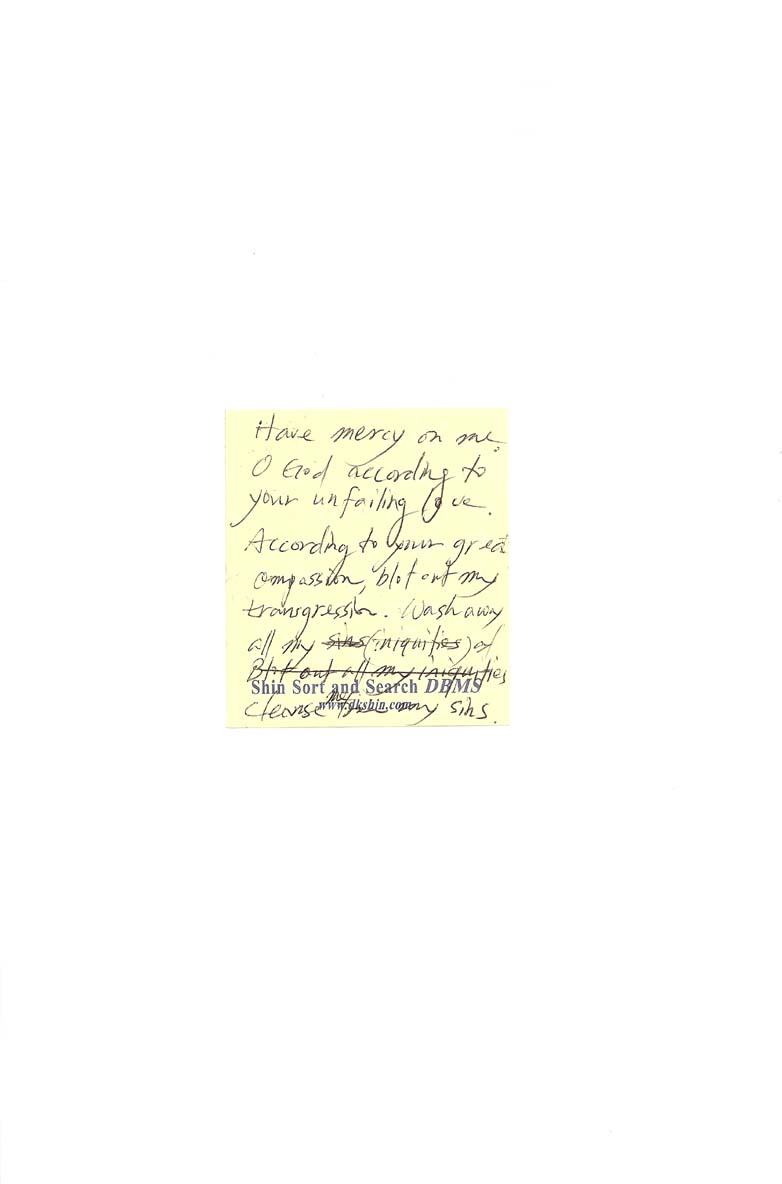 Have mercy on me.
O God according to
your unfailing love.
According to your great
compassion, blot out my
transgression. Wash away
all my sins (iniquities) of
Blot out all my iniquities
Shin Sort and Search DBMS
www.dkshin.com
cleanse me my sins.